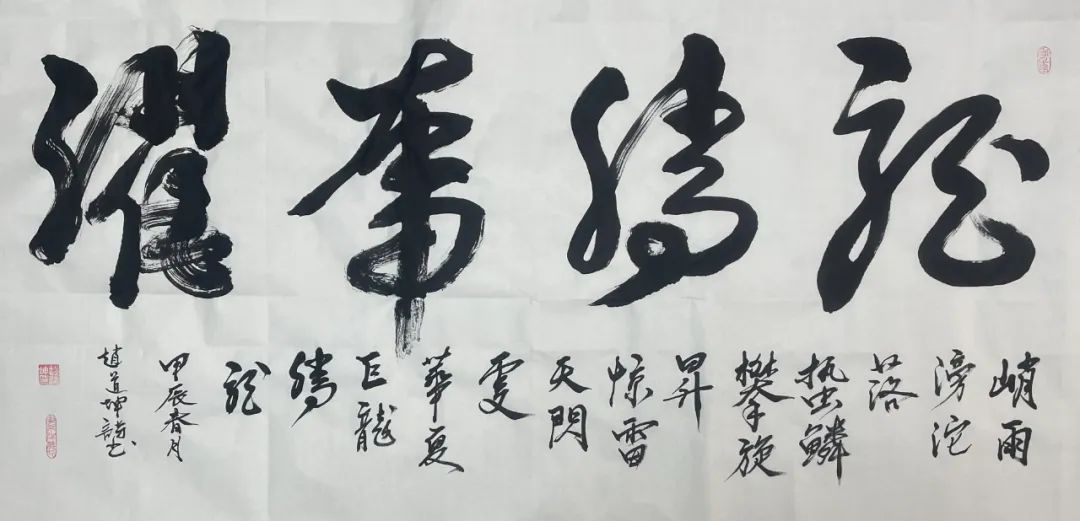 龍騰
峭雨
滂沱
落
蟄鱗
攀旋
昇
惊雷
天閃
華夏
巨龍
騰
龍
甲辰春月
趙道坤詩书